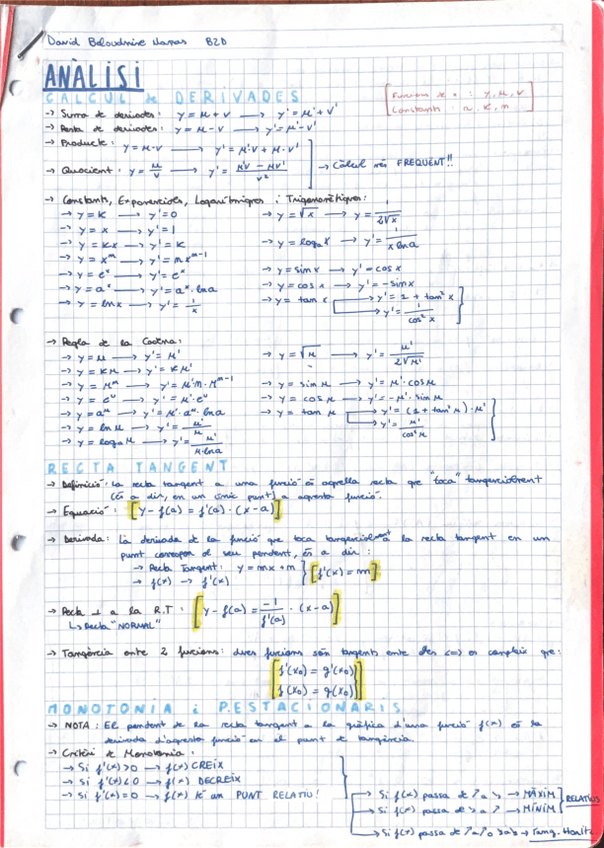 David B2D
ANÀLISI
CÀLCUL de DERIVADES
[Funcions de x : y, μ, v
Constants : a, k, m]
→ Suma de derivades: y = μ + v → y' = μ' + v'
→ Resta de derivades: y = μ - v → y' = μ' - v'
→ Producte: y = μ·v → y' = μ'v + μ·v'
→ Quocient: y = μ/v → y' = (μ'v - μv')/v² → Càlcul més FREQÜENT!!
→ Constants, Exponencials, Logarítmiques i Trigonomètriques:
→ y = k → y' = 0
→ y = x → y' = 1
→ y = kx → y' = k
→ y = xᵐ → y' = mxᵐ⁻¹
→ y = eˣ → y' = eˣ
→ y = aˣ → y' = aˣ·ln a
→ y = ln x → y' = 1/x
→ y = √x → y = 1/(2√x)
→ y = logₐx → y' = 1/(x ln a)
→ y = sin x → y' = cos x
→ y = cos x → y' = -sin x
→ y = tan x → y' = 1 + tan² x
→ y' = 1/cos² x
→ Regla de la Cadena:
→ y = μ → y' = μ'
→ y = kμ → y' = kμ'
→ y = μᵐ → y' = μ'm·μᵐ⁻¹
→ y = eᵘ → y' = μ'·eᵘ
→ y = aᵘ → y' = μ'·aᵘ·ln a
→ y = ln μ → y' = μ'/μ
→ y = logₐμ → y' = μ'/(μ·ln a)
→ y = √μ → y' = μ'/(2√μ)
→ y = sin μ → y' = μ'·cos μ
→ y = cos μ → y' = -μ'·sin μ
→ y = tan μ → y' = (1 + tan² μ)·μ'
→ y' = μ'/cos² μ
RECTA TANGENT
→ Definició: La recta tangent a una funció és aquella recta que "toca" tangencialment
(és a dir, en un únic punt) a aquesta funció.
→ Equació: [y - f(a) = f'(a)·(x - a)]
→ Derivada: La derivada de la funció que toca tangencialment a la recta tangent en un
punt correspon al seu pendent, és a dir:
→ Recta Tangent: y = mx + n
→ f(x) → f'(x) } [f'(x) = m]
→ Recta ⊥ a la R.T: [y - f(a) = -1/f'(a) · (x - a)]
↳ Recta "NORMAL"
→ Tangència entre 2 funcions: dues funcions són tangents entre elles <=> es compleix que:
[f'(x₀) = g'(x₀)
f(x₀) = g(x₀)]
MONOTONIA i P.ESTACIONARIS
→ NOTA: El pendent de la recta tangent a la gràfica d'una funció f(x) és la
derivada d'aquesta funció en el punt de tangència.
→ Criteri de Monotonia:
→ Si f'(x) > 0 → f(x) CREIX
→ Si f'(x) < 0 → f(x) DECREIX
→ Si f'(x) = 0 → f(x) té un PUNT RELATIU!
→ Si f(x) passa de ↗ a ↘ → MÀXIM
→ Si f(x) passa de ↘ a ↗ → MÍNIM ] RELATIUS
→ Si f(x) passa de ↗ a ↗ o ↘ a ↘ → Tang. Horitz